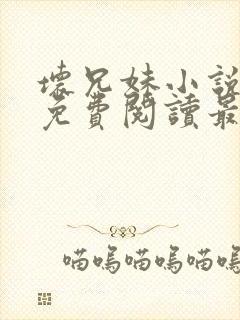 壞兄妹小說
免費閱讀最
喵嗚喵嗚喵嗚